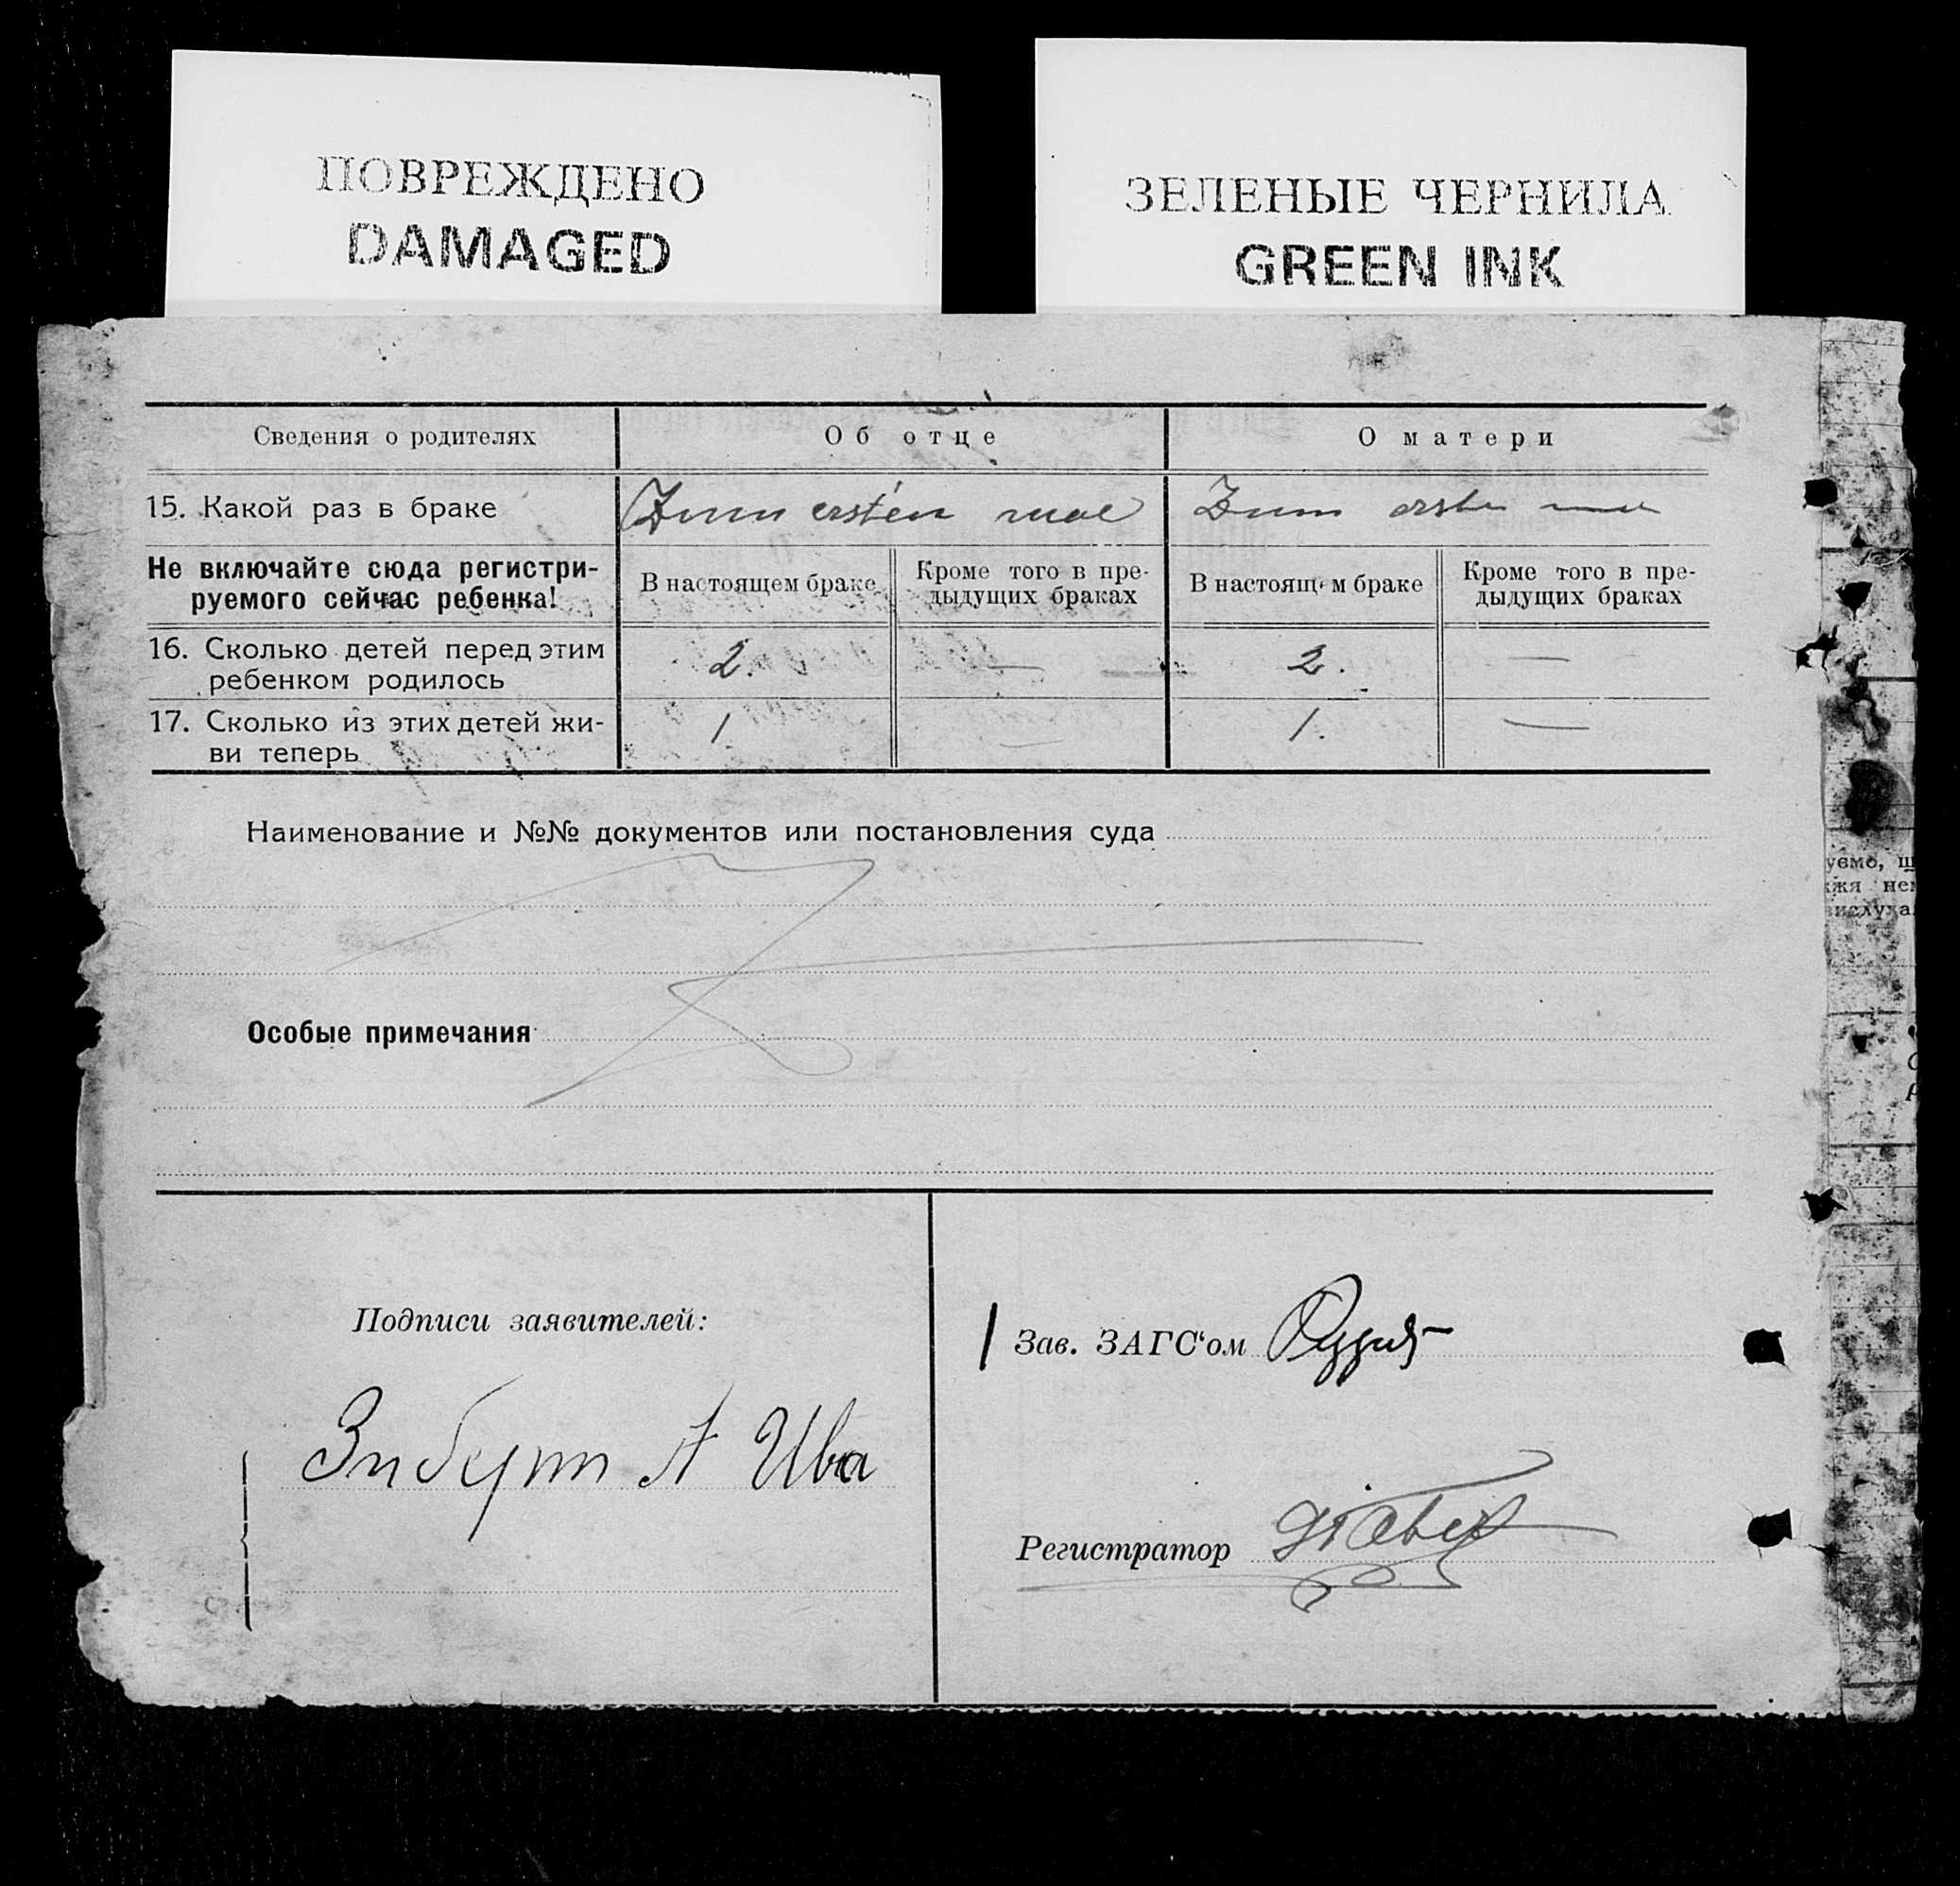 ПОВРЕЖДЕНО
DAMAGED
ЗЕЛЕНЫЕ ЧЕРНИЛА
GREEN INK
Сведения о родителях Об отце О матери
15. Какой раз в браке Zum ersten mal Zum erste
Не включайте сюда регистри-
руемого сейчас ребенка!
В настоящем браке
Кроме того в пре-
дыдущих браках
В настоящем браке
Кроме того в пре-
дыдущих браках
16. Сколько детей перед этим
ребенком родилось
2. — 2. —
17. Сколько из этих детей жи-
ви теперь
1 — 1. —
Наименование и №№ документов или постановления суда
Особые примечания
Подписи заявителей:
Зиберт А Ива
Зав. ЗАГС‘ом
Регистратор
уємо, щ
жя нем
вислуха